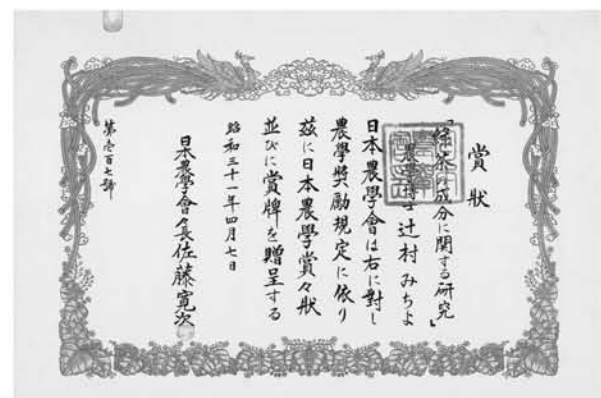 賞状
「緑茶の成分に関する研究」
農學博士 辻村みちよ
日本農學會は右に對し
農學奬勵規定に依り
茲に日本農學賞々狀
並びに賞牌を贈呈する
昭和三十一年四月七日
日本農學會々長佐藤寛次
第壱百七號